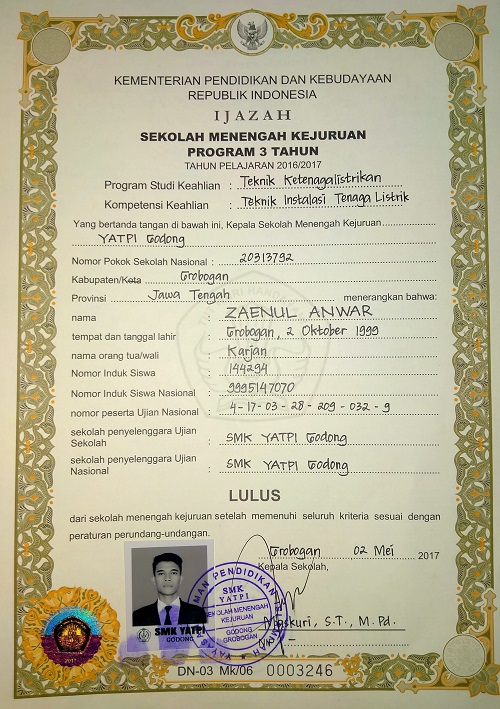 KEMENTERIAN PENDIDIKAN DAN KEBUDAYAAN
REPUBLIK INDONESIA
IJAZAH
SEKOLAH MENENGAH KEJURUAN
PROGRAM 3 TAHUN
TAHUN PELAJARAN 2016/2017
Program Studi Keahlian : Teknik Ketenagalistrikan
Kompetensi Keahlian : Teknik Instalasi Tenaga Listrik
Yang bertanda tangan di bawah ini, Kepala Sekolah Menengah Kejuruan
YATPI Godong
Nomor Pokok Sekolah Nasional : 20313792
Kabupaten/Kota : Grobogan
Provinsi : Jawa Tengah menerangkan bahwa:
nama : ZAENUL ANWAR
tempat dan tanggal lahir : Grobogan, 2 Oktober 1999
nama orang tua/wali : Karjan
Nomor Induk Siswa : 144294
Nomor Induk Siswa Nasional : 9995147070
nomor peserta Ujian Nasional : 4-17-03-28-209-032-9
sekolah penyelenggara Ujian
Sekolah : SMK YATPI Godong
sekolah penyelenggara Ujian
Nasional : SMK YATPI Godong
LULUS
dari sekolah menengah kejuruan setelah memenuhi seluruh kriteria sesuai dengan
peraturan perundang-undangan.
Grobogan, 02 Mei 2017
Kepala Sekolah,
SMK
YATPI
SEKOLAH MENENGAH
KEJURUAN
GODONG
GROBOGAN
SMK YATPI
GODONG
Maskuri, S.T., M.Pd.
2017
DN-03 Mk/06 0003246